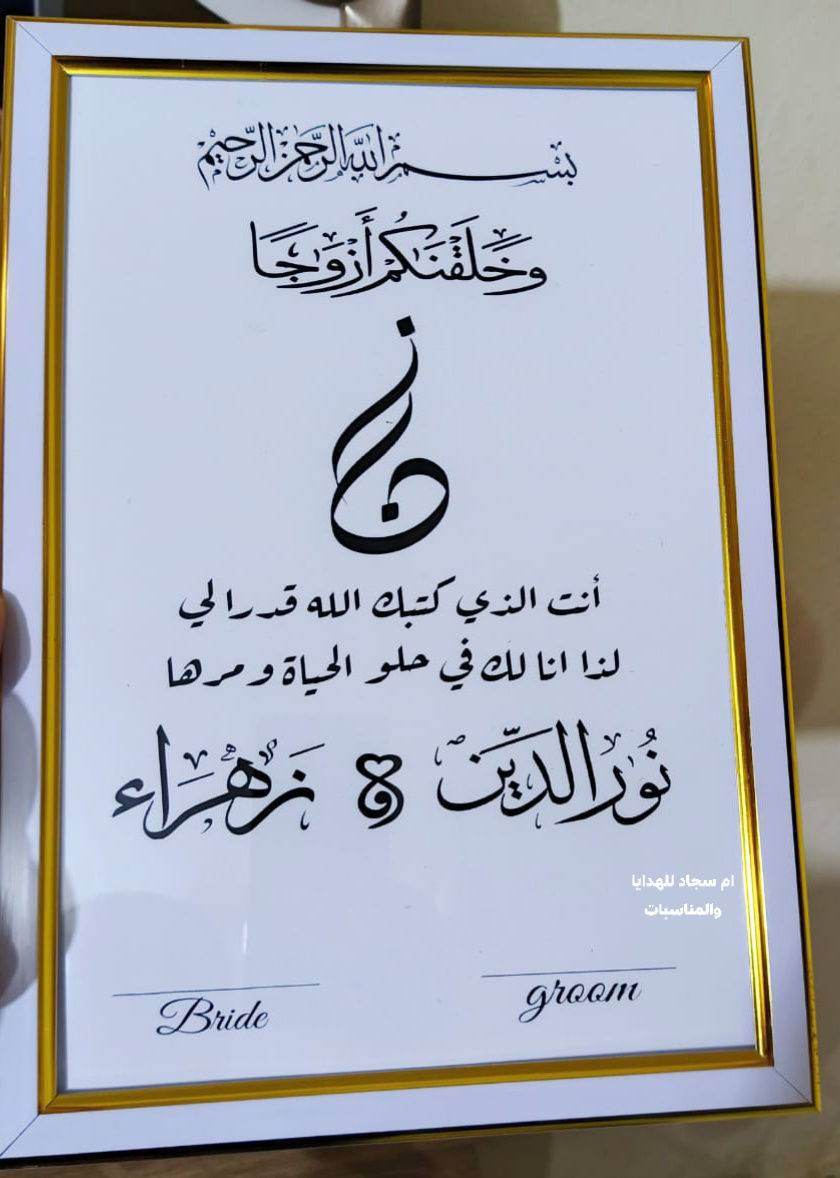 بسم الله الرحمن الرحيم
وَخَلَقْنَاكُمْ أَزْوَاجًا
ز ن
أنت الذي كتبك الله قدرا لي
لذا انا لك في حلو الحياة و مرها
نُور الدِّين و زهراء
ام سجاد للهدايا
والمناسبات
Bride groom